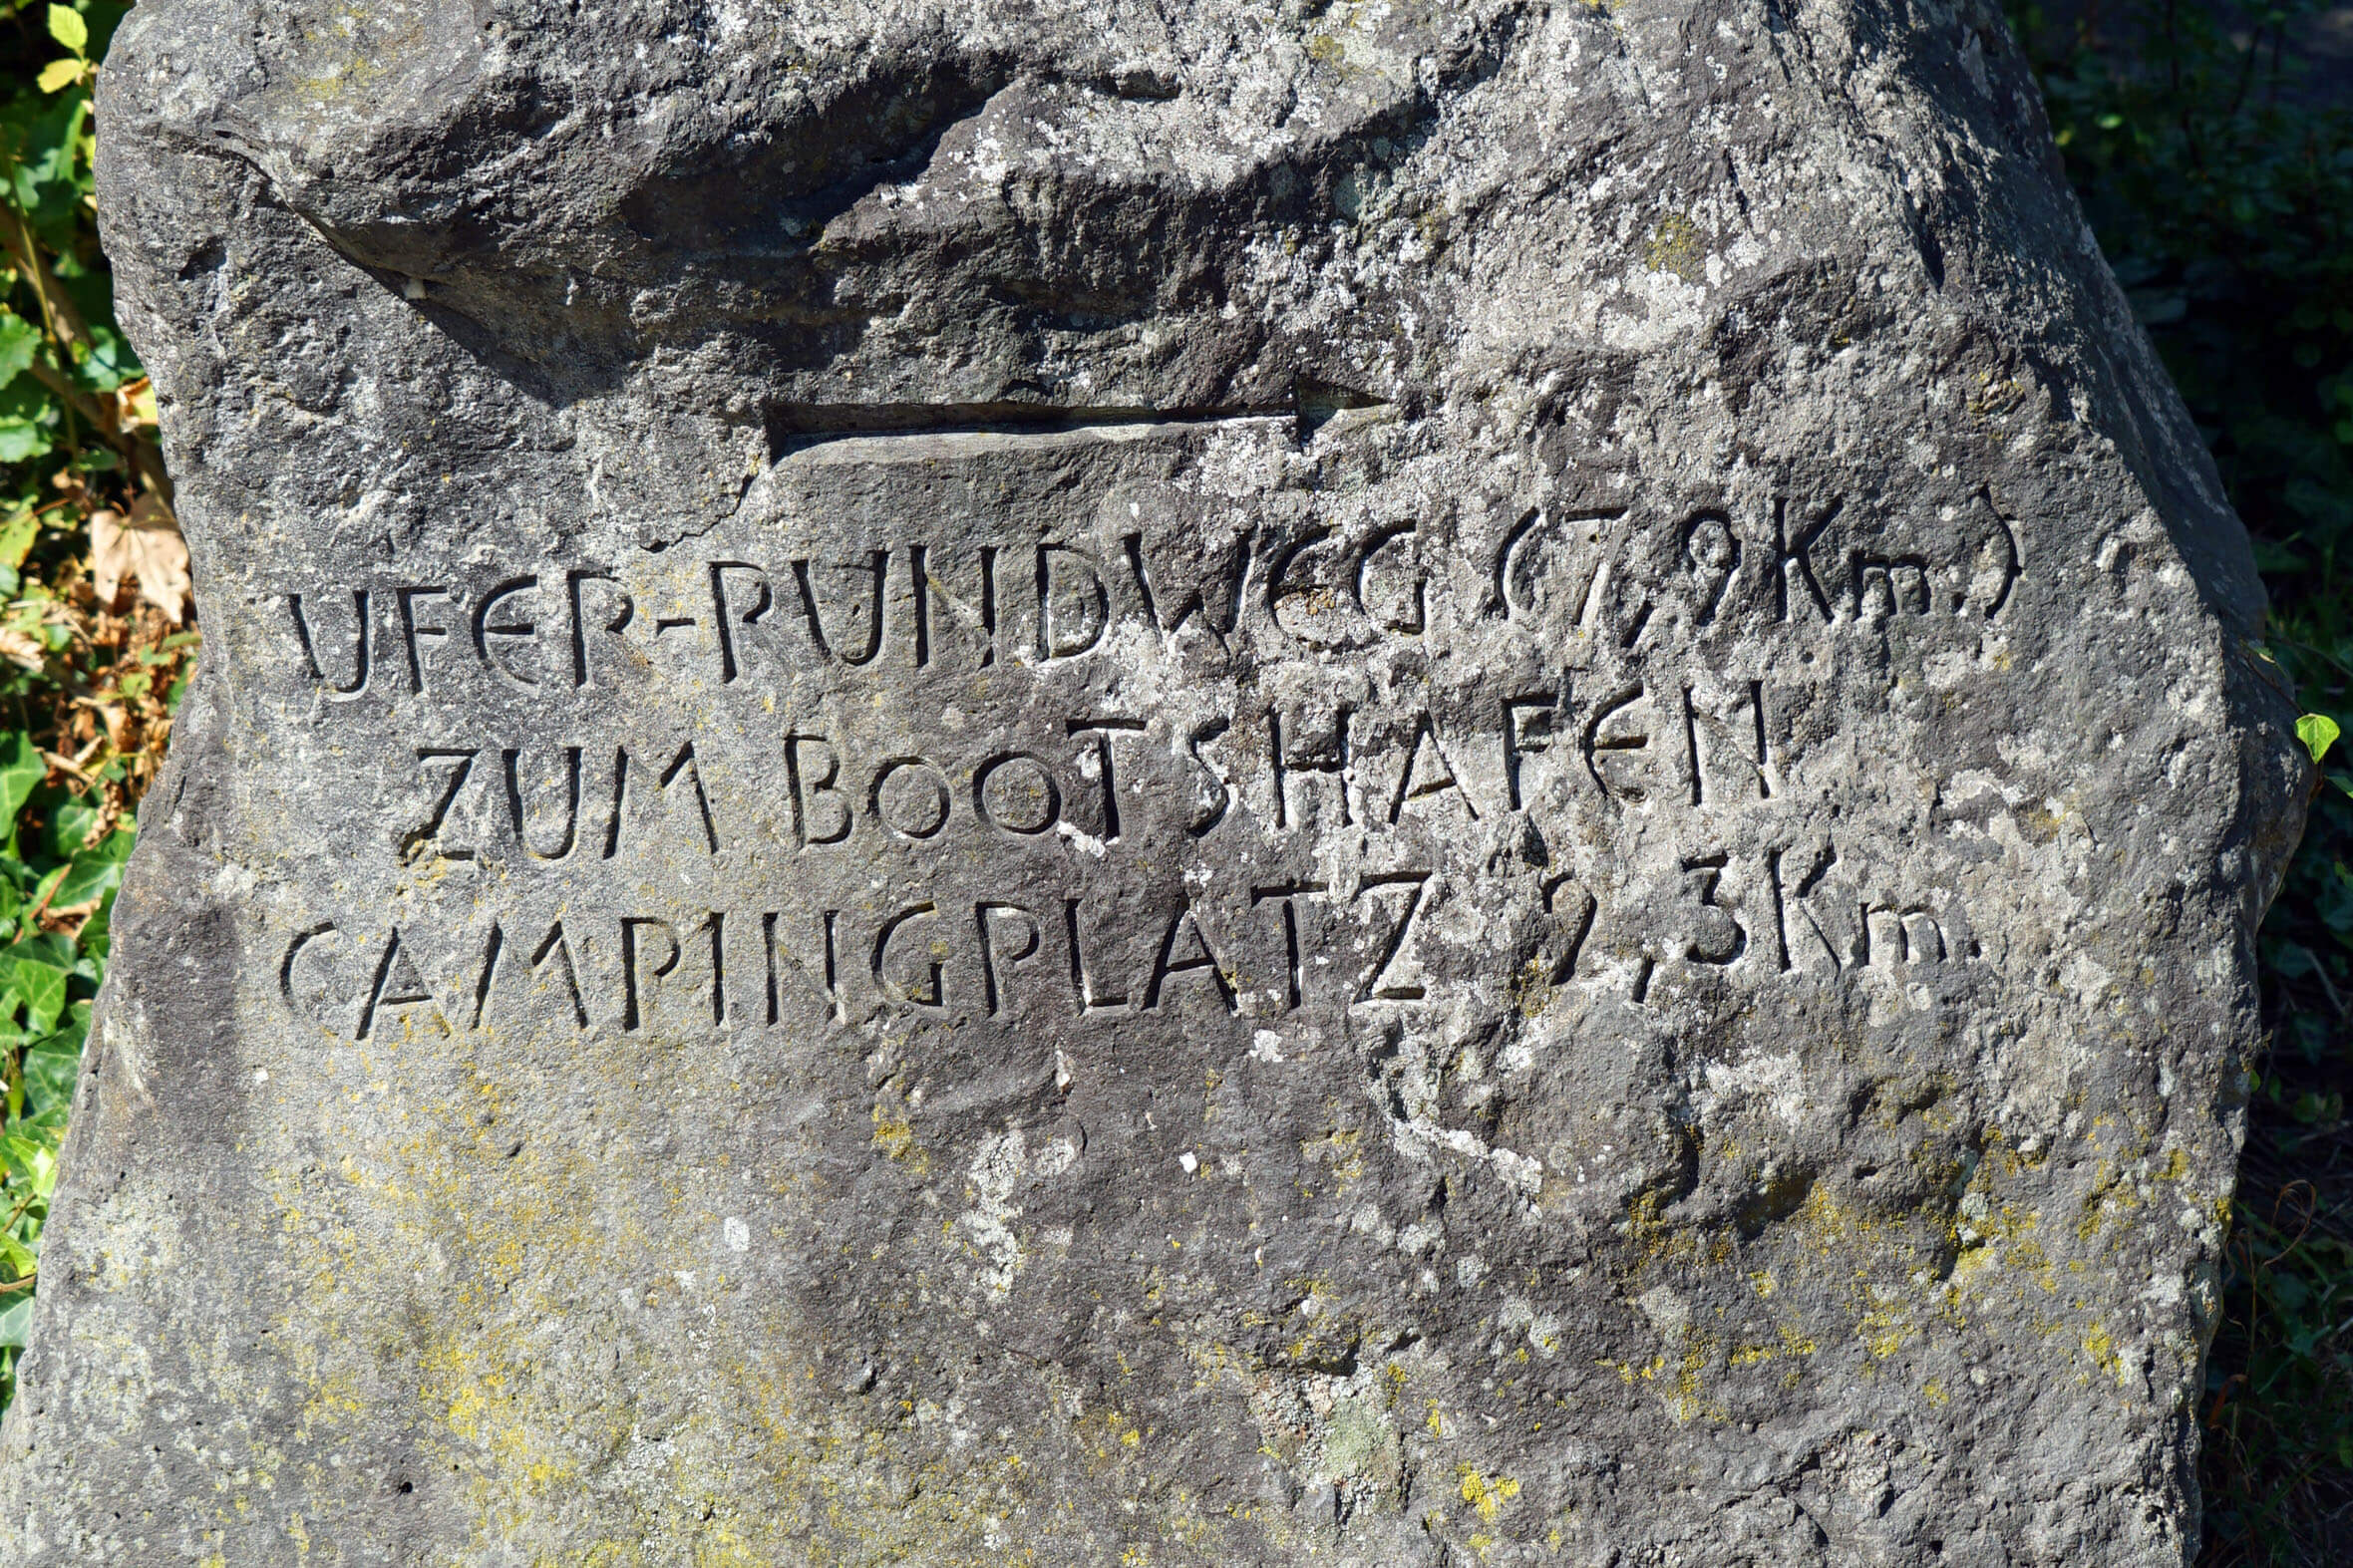 UFER-RUNDWEG (7,9Km.)
ZUM BOOTSHAFEN
CAMPINGPLATZ 2,3Km.